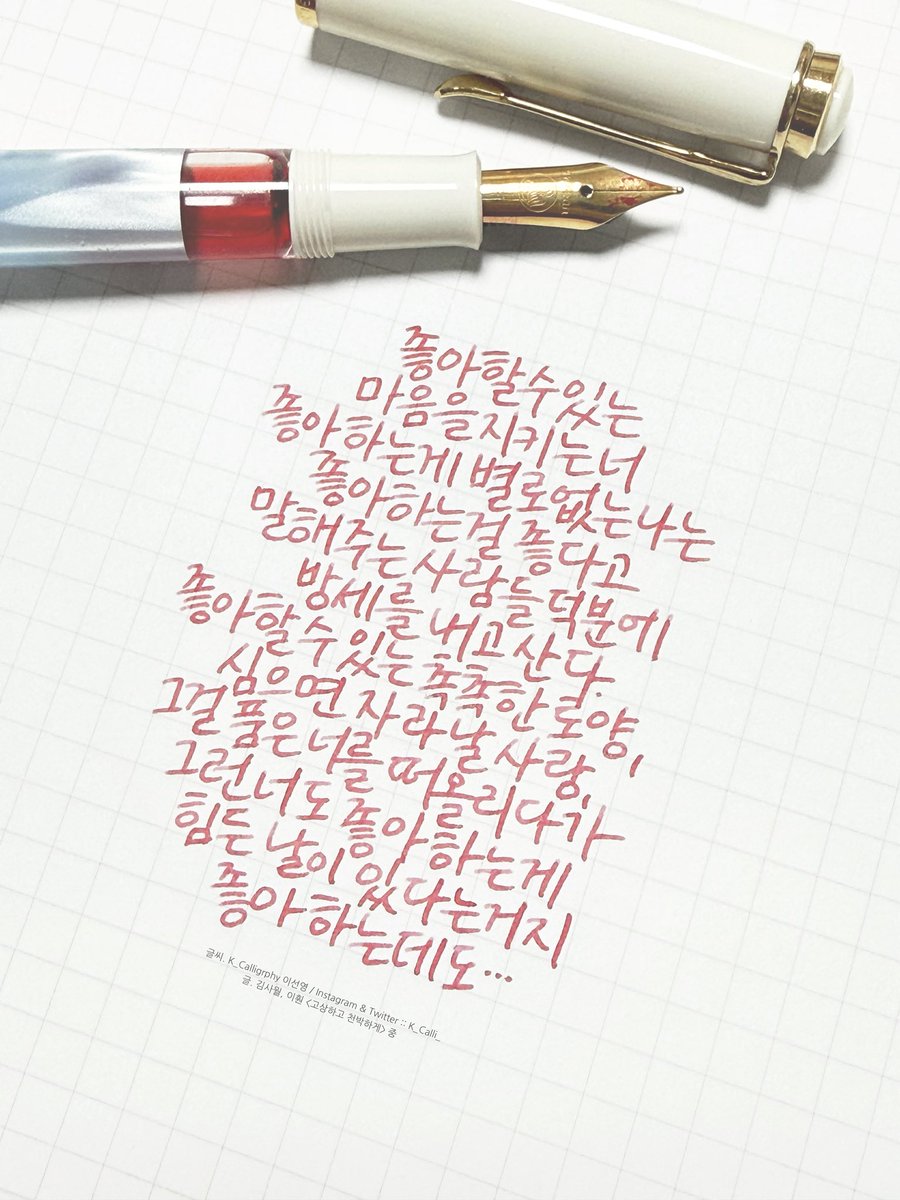 좋아할수있는
마음을지키는너
좋아하는게 별로없는나는
좋아하는걸 좋다고
말해주는사람들덕분에
방세를 내고 산다.
좋아할 수 있는 축축한 토양,
심으면 자라날 사랑,
그걸 품은너를 떠올리다가
그런너도 좋아하는게
힘든 날이 있다는거지
좋아하는데도...
글씨. K_Calligrphy 이선영 / Instagram & Twitter :: K_Calli_
글. 김사월, 이훤 <고상하고 천박하게> 중